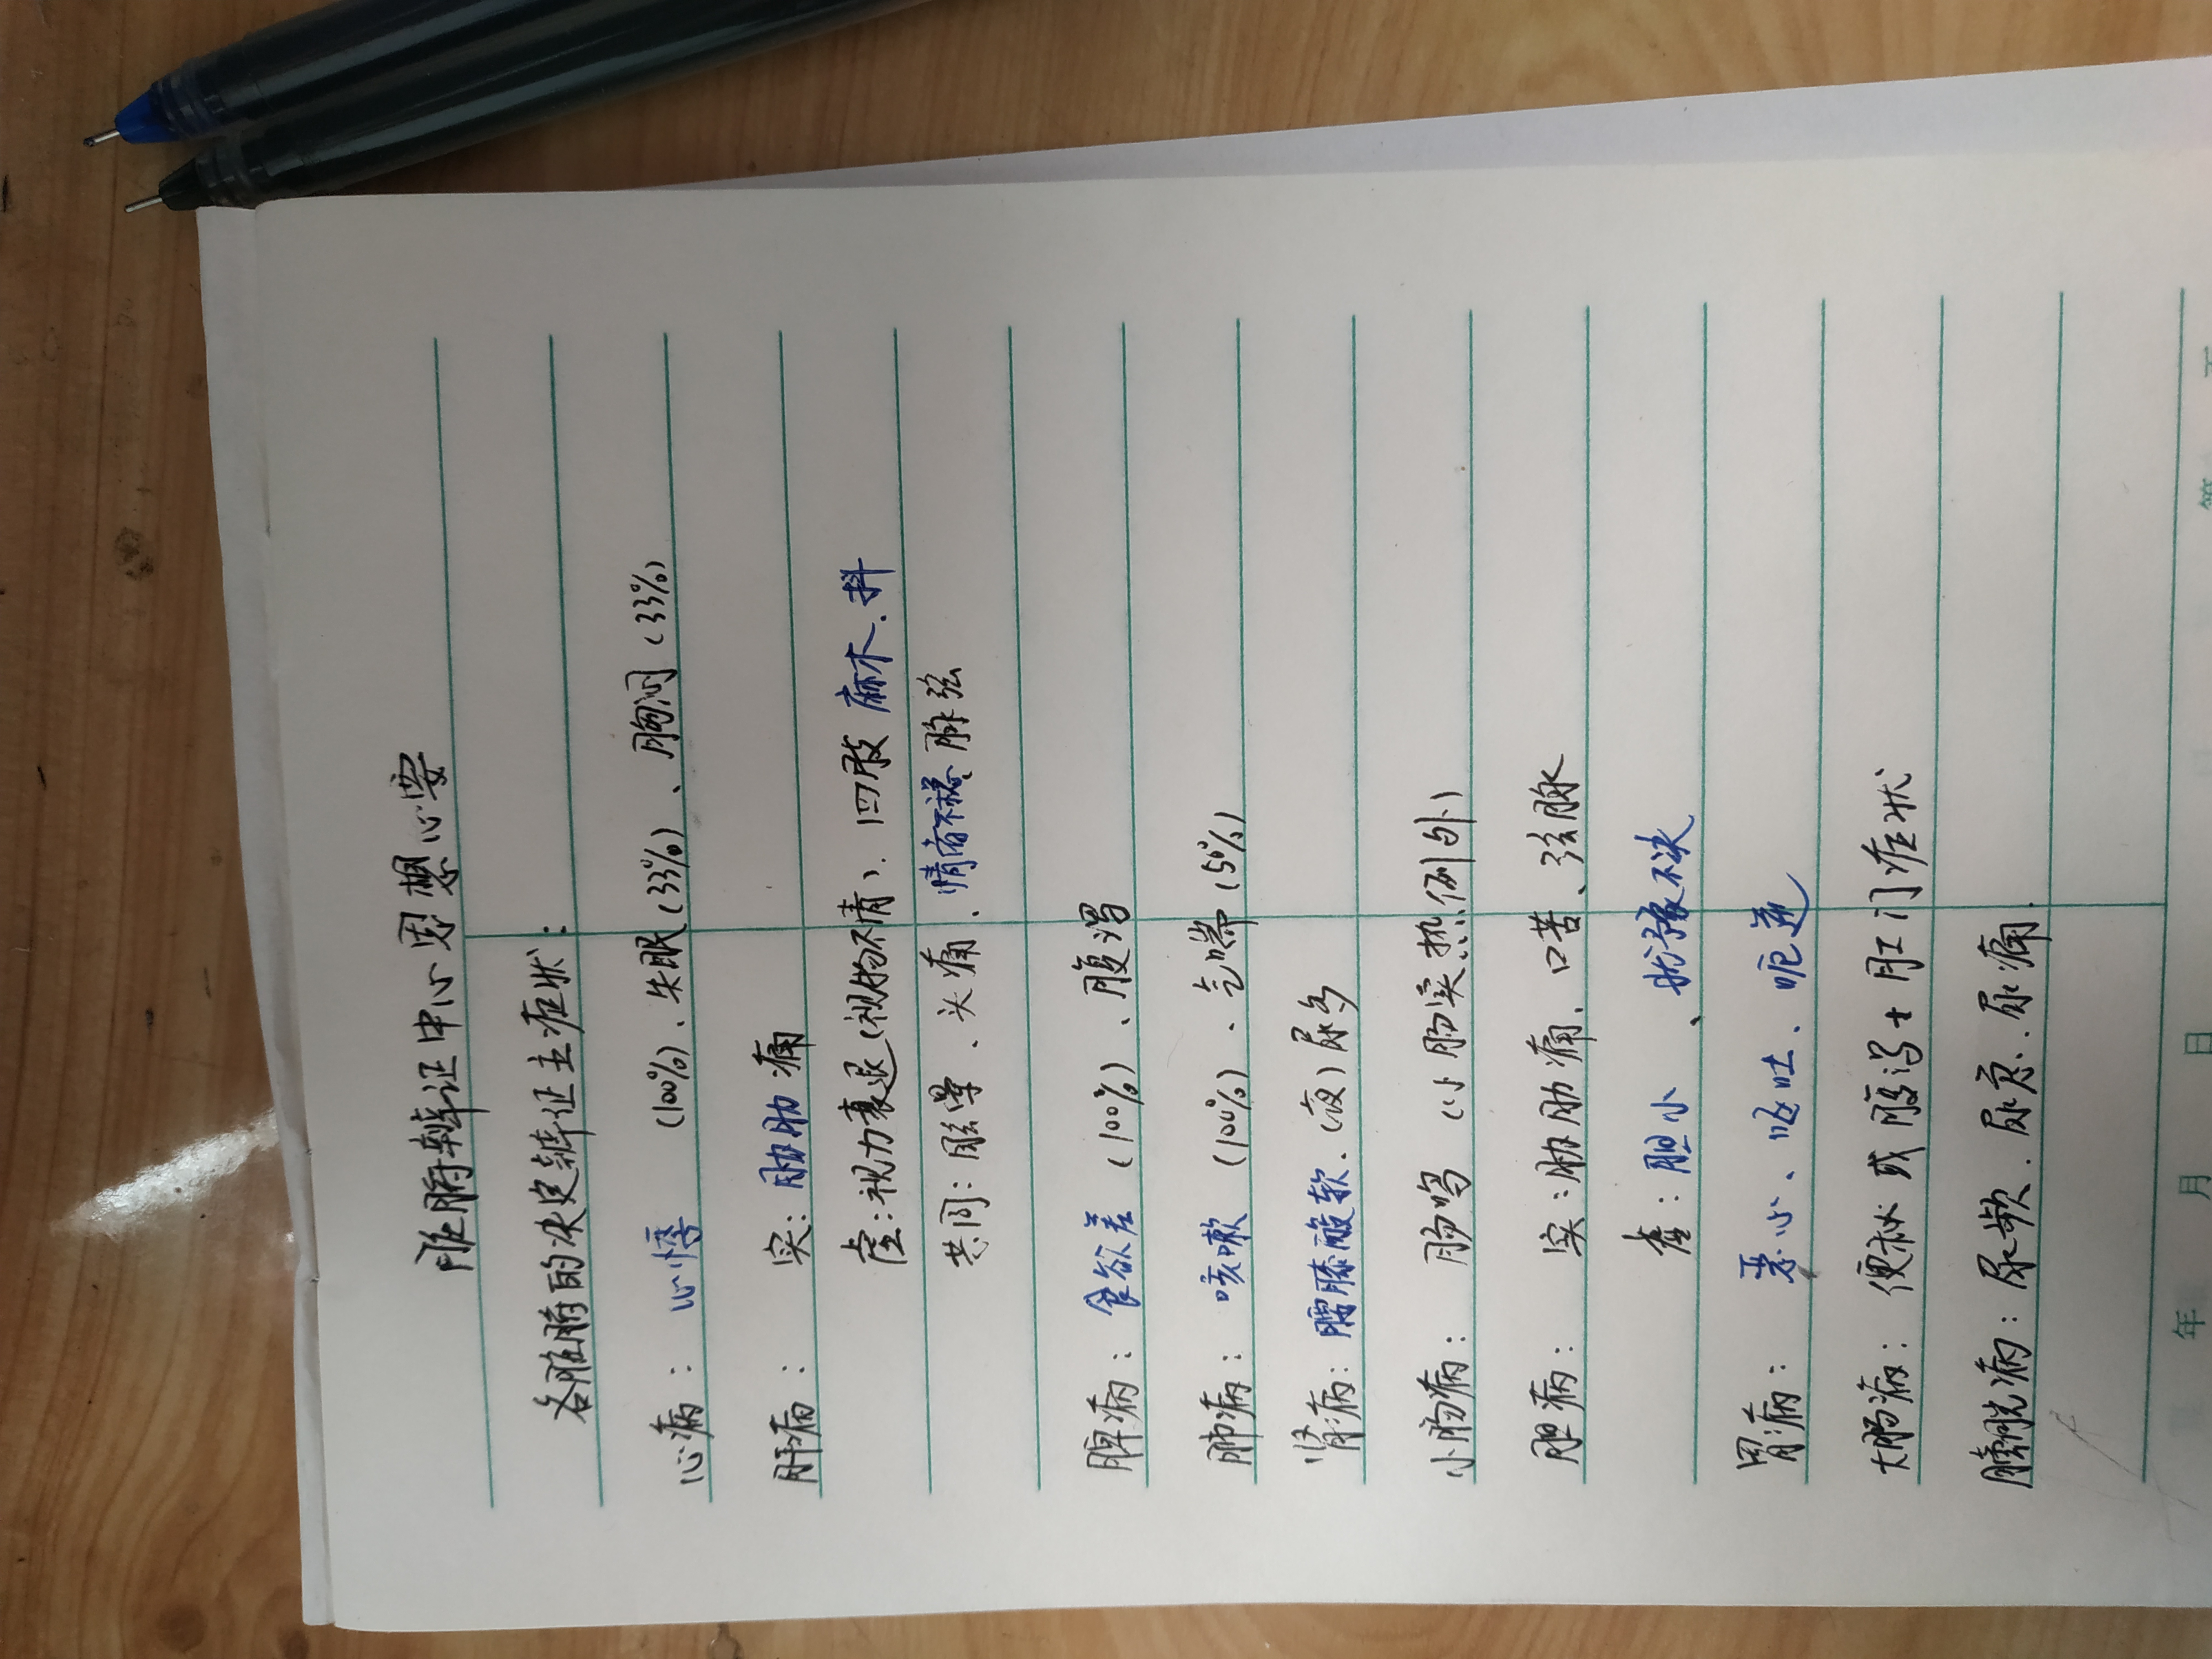 脏腑辨证中心思想心要
各脏腑的决定辨证主症状：
心病：心悸（100%）、失眠（33%）、胸闷（33%）
肝病：实：胁肋痛
虚：视力衰退（视物不清）、四肢麻木、抖
共同：眩晕、头痛、情志不稳、脉弦
脾病：食欲差（100%）、腹泻
肺病：咳嗽（100%）、气喘（50%）
肾病：腰膝酸软、（夜）尿多
小肠病：肠鸣（小肠实热例外）
胆病：实：胁肋痛、口苦、弦脉
虚：胆小、犹豫不决
胃病：恶心、呕吐、呃逆
大肠病：便秘或腹泻+肛门症状
膀胱病：尿频、尿急、尿痛.
年 月 日
第 页